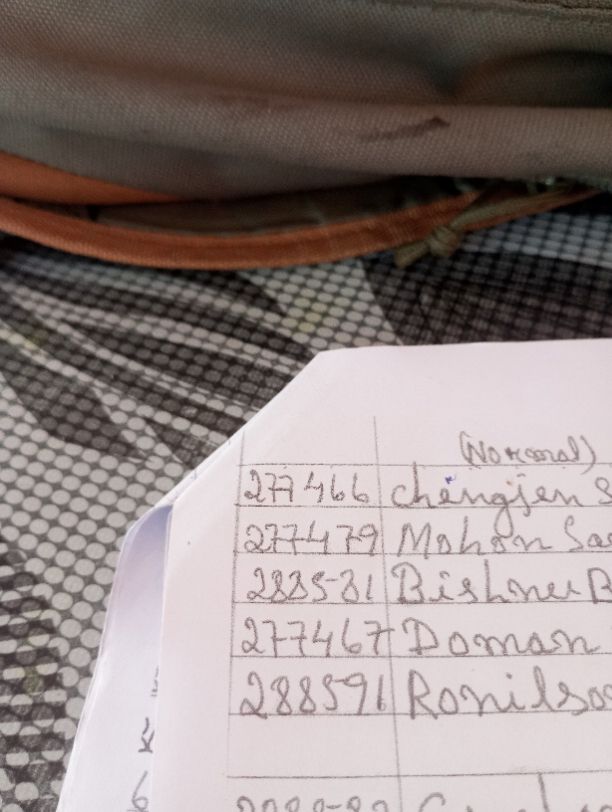 (Normal)
277466 chengjen S
277479 Mohon Sa
288581 Bishnu B
277467 Doman
288591 Ronilso